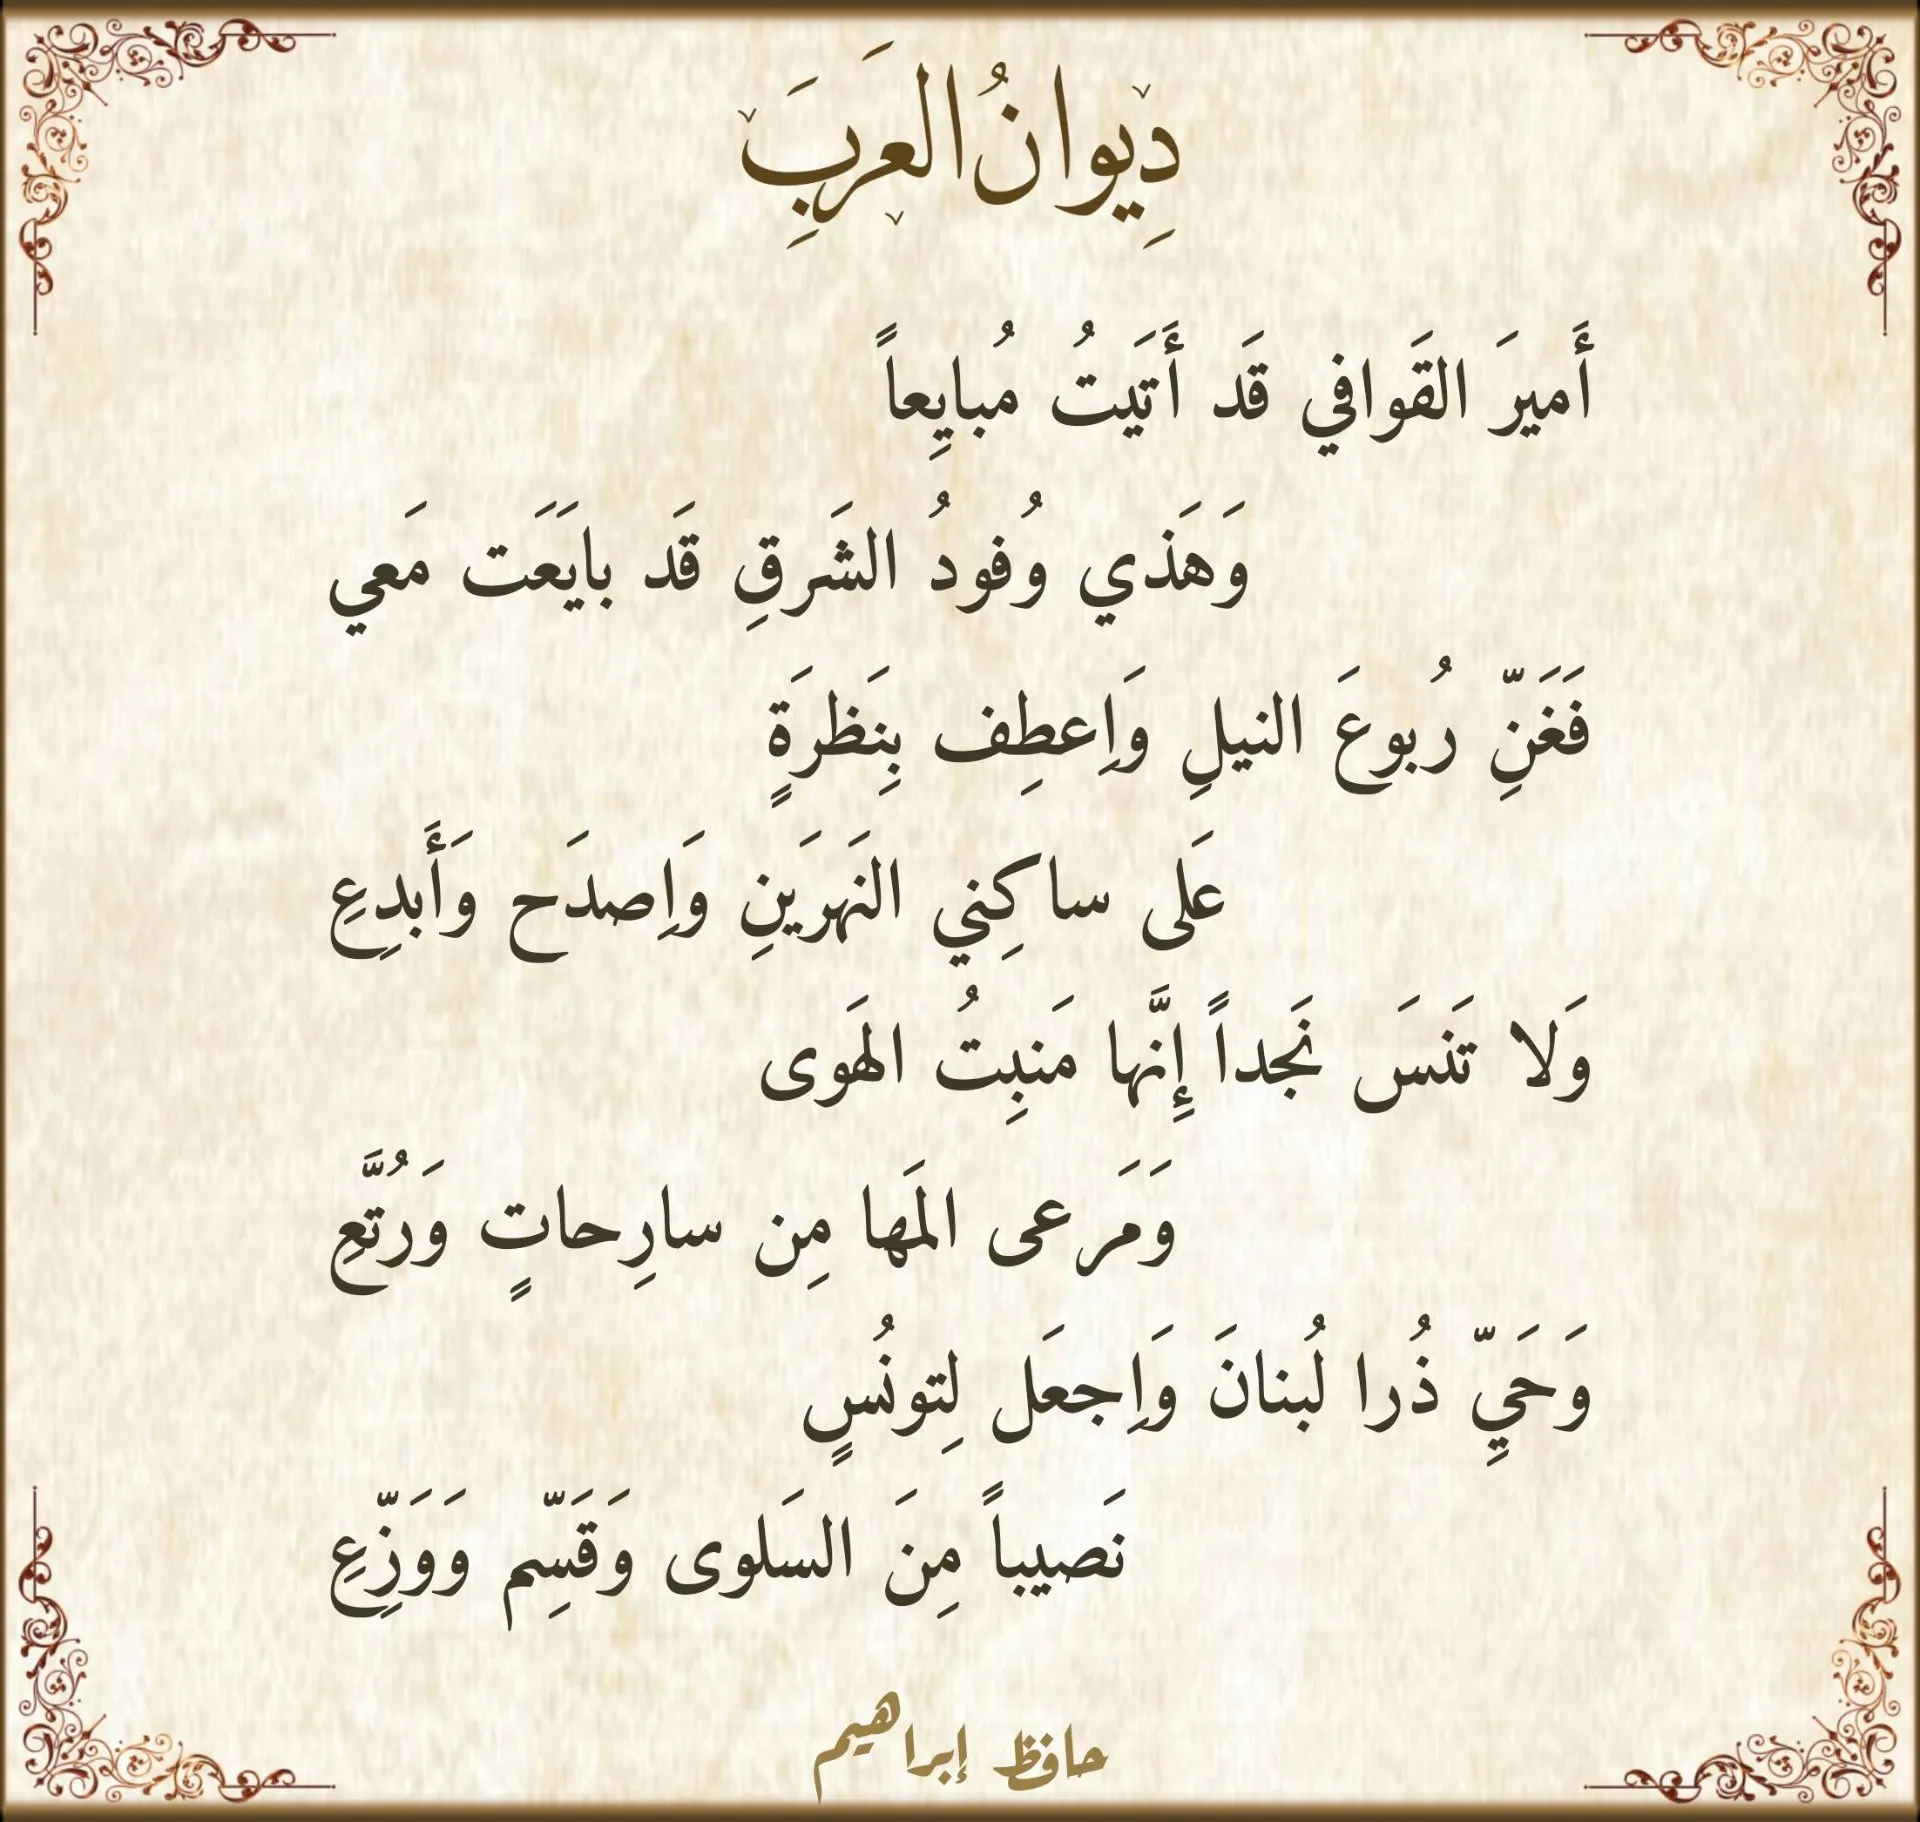 دِيوانُ العَرَبِ
أَميرَ القَوافي قَد أَتَيتُ مُبايِعاً
وَهَذي وُفودُ الشَرقِ قَد بايَعَت مَعي
فَغَنِّ رُبوعَ النيلِ وَاِعطِف بِنَظرَةٍ
عَلى ساكِني النَهرَينِ وَاِصدَح وَأَبدِعِ
وَلا تَنسَ نَجداً إِنَّها مَنبِتُ الهَوى
وَمَرعى المَها مِن سارِحاتٍ وَرُتَّعِ
وَحَيِّ ذُرا لُبنانَ وَاِجعَل لِتونُسٍ
نَصيباً مِنَ السَلوى وَقَسِّم وَوَزِّعِ
حافظ إبراهيم